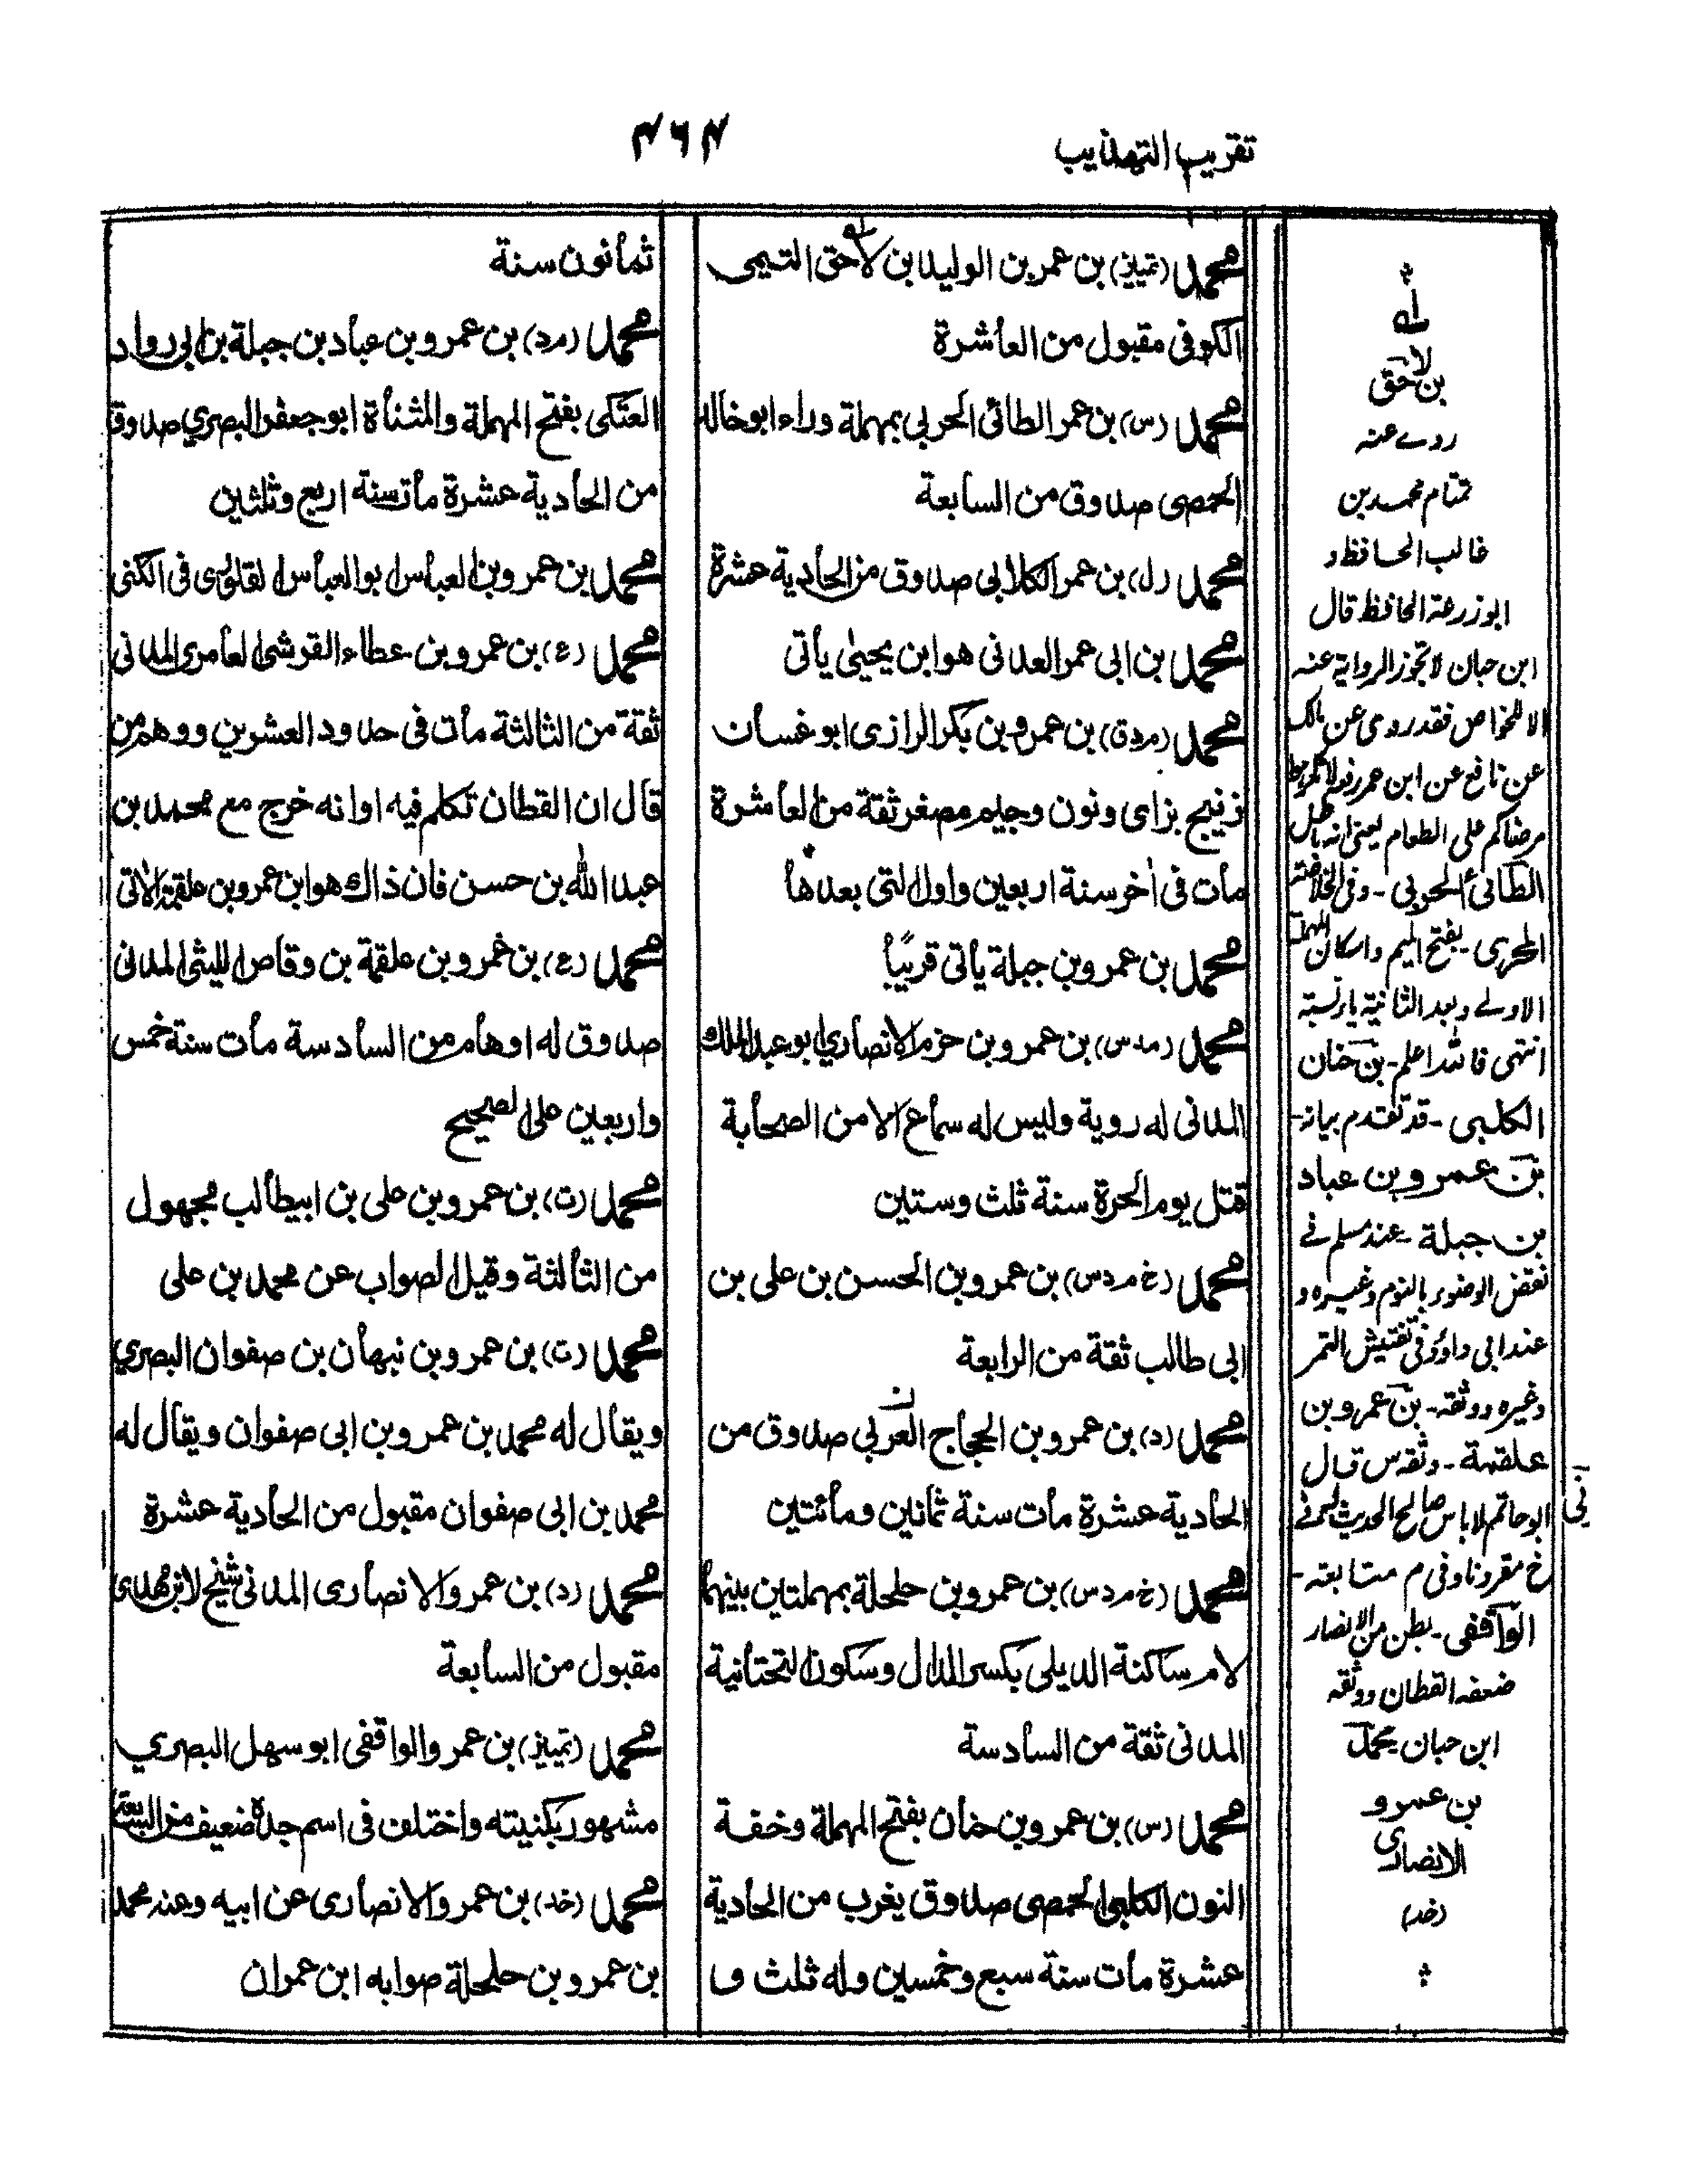 تقريب التهذيب
۴۶۴
محمد (تمييز) بن عمر بن الوليد بن لاحق التيمى
الكوفى مقبول من العاشرة
محمد (س) بن عمر الطائى الحربى بمهملة وراء ابو خالد
الحمصى صدوق من السابعة
محمد (ل) بن عمر الكلابى صدوق من الحادية عشرة
محمد بن ابى عمر العدنى هو ابن يحيىٰ يأتى
محمد (م د ق) بن عمرو بن بكر الرازى ابو غسان
زنيج بزاى ونون وجيم مصغر ثقة من العاشرة
مات فى اٰخر سنة اربعين واول التى بعدها
محمد بن عمرو بن جبلة يأتى قريبًا
محمد (مد س) بن عمرو بن حزم الانصاري ابو عبد الملك
المدنى له روية وليس له سماع الا من الصحابة
قتل يوم الحرة سنة ثلث وستين
محمد (خ م د س) بن عمرو بن الحسن بن على بن
ابى طالب ثقة من الرابعة
محمد (د) بن عمرو بن الحجاج الغربى صدوق من
الحادية عشرة مات سنة ثمانين ومائتين
محمد (خ م د س) بن عمرو بن حلحلة بمهملتين بينهما
لام ساكنة الديلى بكسر الدال وسكون التحتانية
المدنى ثقة من السادسة
محمد (س) بن عمرو بن حنان بفتح المهملة وخفة
النون الكلبى الحمصى صدوق يغرب من الحادية
عشرة مات سنة سبع وخمسين وله ثلث و
ثمانون سنة
محمد (م د) بن عمرو بن عباد بن جبلة بن ابى رواد
العتكى بفتح المهملة والمثناة ابو جعفر البصري صدوق
من الحادية عشرة مات سنة اربع وثلثين
محمد بن عمرو بن العباس ابو العباس القلورى فى الكنى
محمد (ع) بن عمرو بن عطاء القرشى العامرى المدنى
ثقة من الثالثة مات فى حدود العشرين ووهم من
قال ان القطان تكلم فيه او انه خرج مع محمد بن
عبد الله بن حسن فان ذاك هو ابن عمرو بن علقمة الاٰتى
محمد (ع) بن عمرو بن علقمة بن وقاص الليثى المدنى
صدوق له اوهام من السادسة مات سنة خمس
واربعين على الصحيح
محمد (ت) بن عمرو بن على بن ابيطالب مجهول
من الثالثة وقيل الصواب عن محمد بن على
محمد (ت) بن عمرو بن نبهان بن صفوان البصري
ويقال له محمد بن عمرو بن ابى صفوان ويقال له
محمد بن ابى صفوان مقبول من الحادية عشرة
محمد (د) بن عمرو الانصارى المدنى شيخ لابن مهدى
مقبول من السابعة
محمد (تمييز) بن عمرو الواقفى ابو سهل البصري
مشهور بكنيته واختلف فى اسم جده ضعيف من السابعة
محمد (خد) بن عمرو الانصارى عن ابيه وعنه محمد
بن عمرو بن حلحلة صوابه ابن عمران
له
بن لاحق
روے عنه
تمتام محمد بن
غالب الحافظ و
ابو زرعة الحافظ قال
ابن حبان لا تجوز الرواية عنه
الا للخواص فقد روى عن مالك
عن نافع عن ابن عمر رفعه لا تكرهوا
مرضاكم على الطعام يعنى انه باطل
الطائى الحربى - وفى الخلاصة
المحرى - بفتح الميم واسكان المهملة
الاولے وبعد الثانية ياء نسبة
انتهى فالله اعلم - بن حنان
الكلبى - قد تقدم بيانه -
بن عمرو بن عباد
بن جبلة - عند مسلم فے
نقض الوضوء بالنوم وغيره و
عند ابى داؤد فى تفتيش التمر
وغيره ووثقه - بن عمرو بن
علقمة - وثقه س قال
ابو حاتم لا باس صالح الحديث اخرجه فى
خ مقرونا وفى م متابعة -
الواقفى - بطن من الانصار
ضعفه القطان ووثقه
ابن حبان محمد
بن عمرو
الانصارى
(خد)